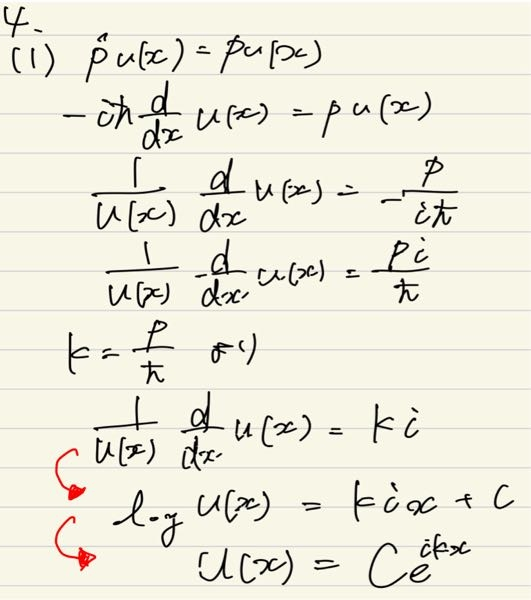 4.
(1) p̂u(x) = pu(x)
-iħ d/dx u(x) = pu(x)
1/u(x) d/dx u(x) = -p/iħ
1/u(x) d/dx u(x) = pi/ħ
k = p/ħ より
1/u(x) d/dx u(x) = ki
log u(x) = kix + C
u(x) = Ce^{ikx}